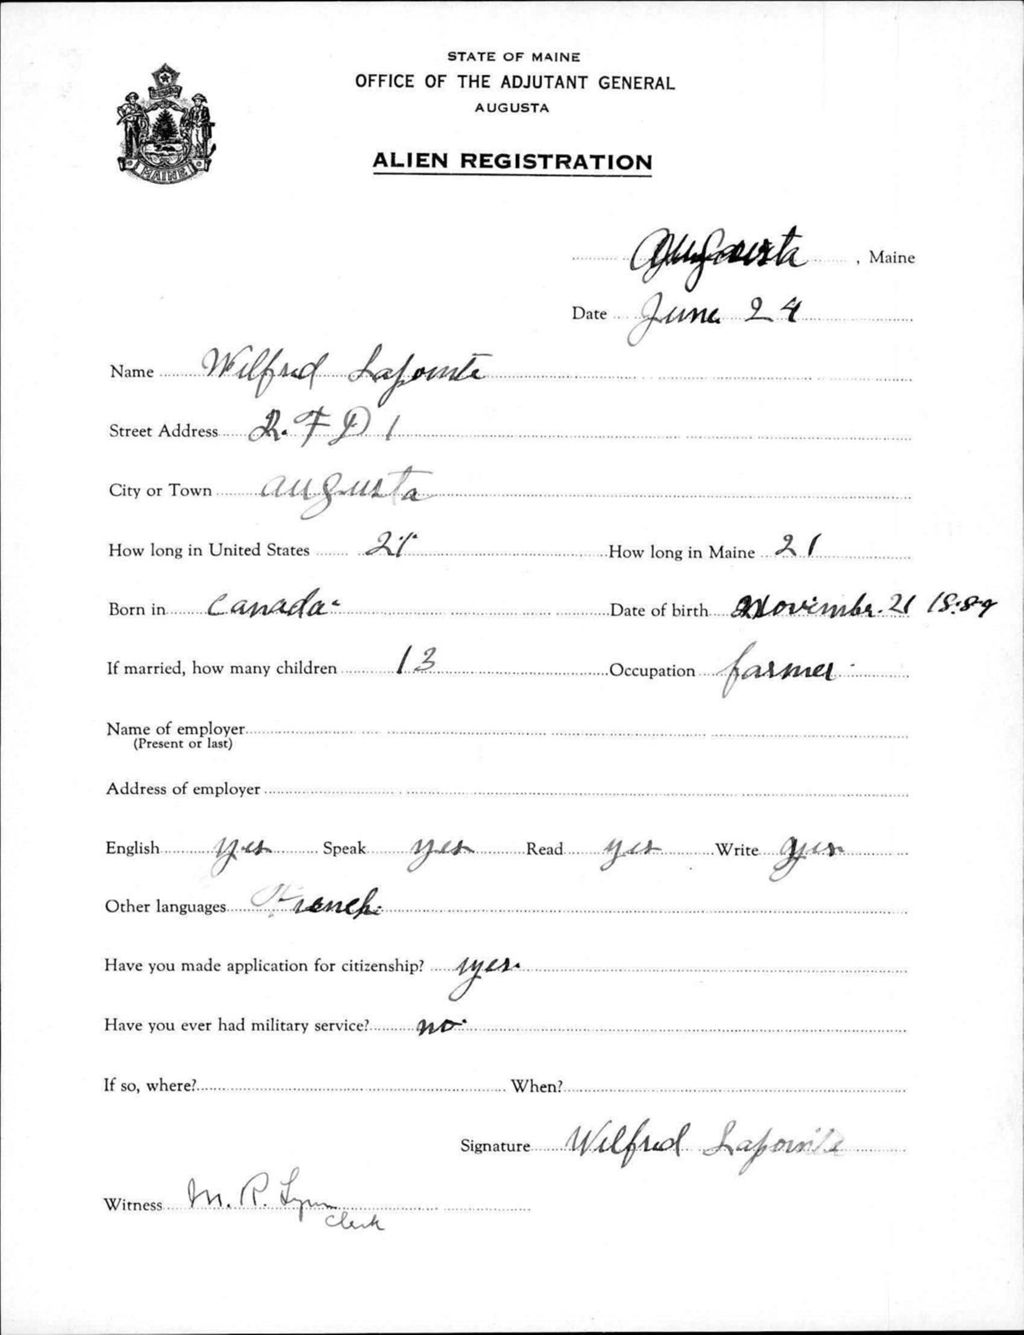 STATE OF MAINE
OFFICE OF THE ADJUTANT GENERAL
AUGUSTA
ALIEN REGISTRATION
MAINE
Augusta, Maine
Date June 24
Name Wilfred Lapointe
Street Address R. F D 1
City or Town augusta
How long in United States 21 How long in Maine 21
Born in Canada Date of birth Novimbr. 21
If married, how many children 13 Occupation farmer
Name of employer
(Present or last)
Address of employer
English yes Speak yes Read yes Write yes
Other languages French
Have you made application for citizenship? yes.
Have you ever had military service? no
If so, where? When?
Signature Wilfred Lapointe
Witness M. R. Lynn
Clerk